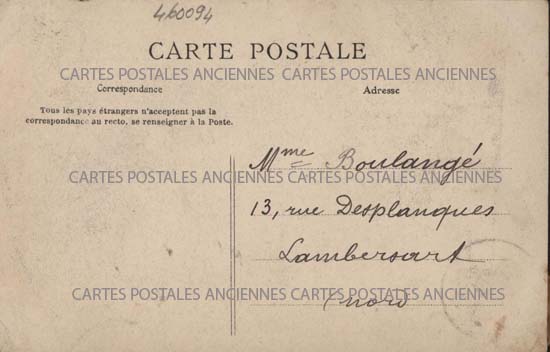 460094
CARTE POSTALE
CARTES POSTALES ANCIENNES CARTES POSTALES ANCIENNES
Correspondance Adresse
Tous les pays étrangers n'acceptent pas la
correspondance au recto, se renseigner à la Poste.
Mme Boulangé
CARTES POSTALES ANCIENNES CARTES POSTALES ANCIENNES
13, rue Desplanques
Lambersart
CARTES POSTALES ANCIENNES CARTES POSTALES ANCIENNES
(Nord)